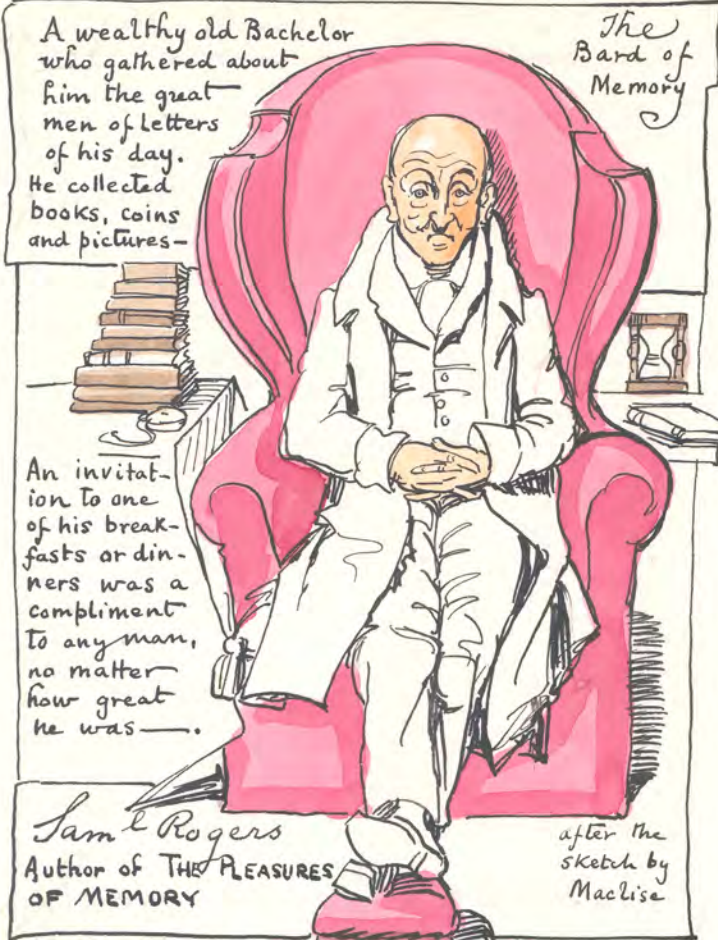 A wealthy old Bachelor
who gathered about
him the great
men of Letters
of his day.
He collected
books, coins
and pictures—
The
Bard of
Memory
An invitat-
ion to one
of his break-
fasts or din-
ners was a
compliment
to any man,
no matter
how great
he was —.
Sam l Rogers
Author of THE PLEASURES
OF MEMORY
after the
sketch by
Maclise